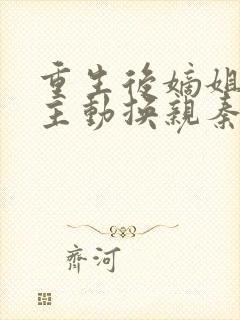 重生後嫡姐
主動换親秦
齊河